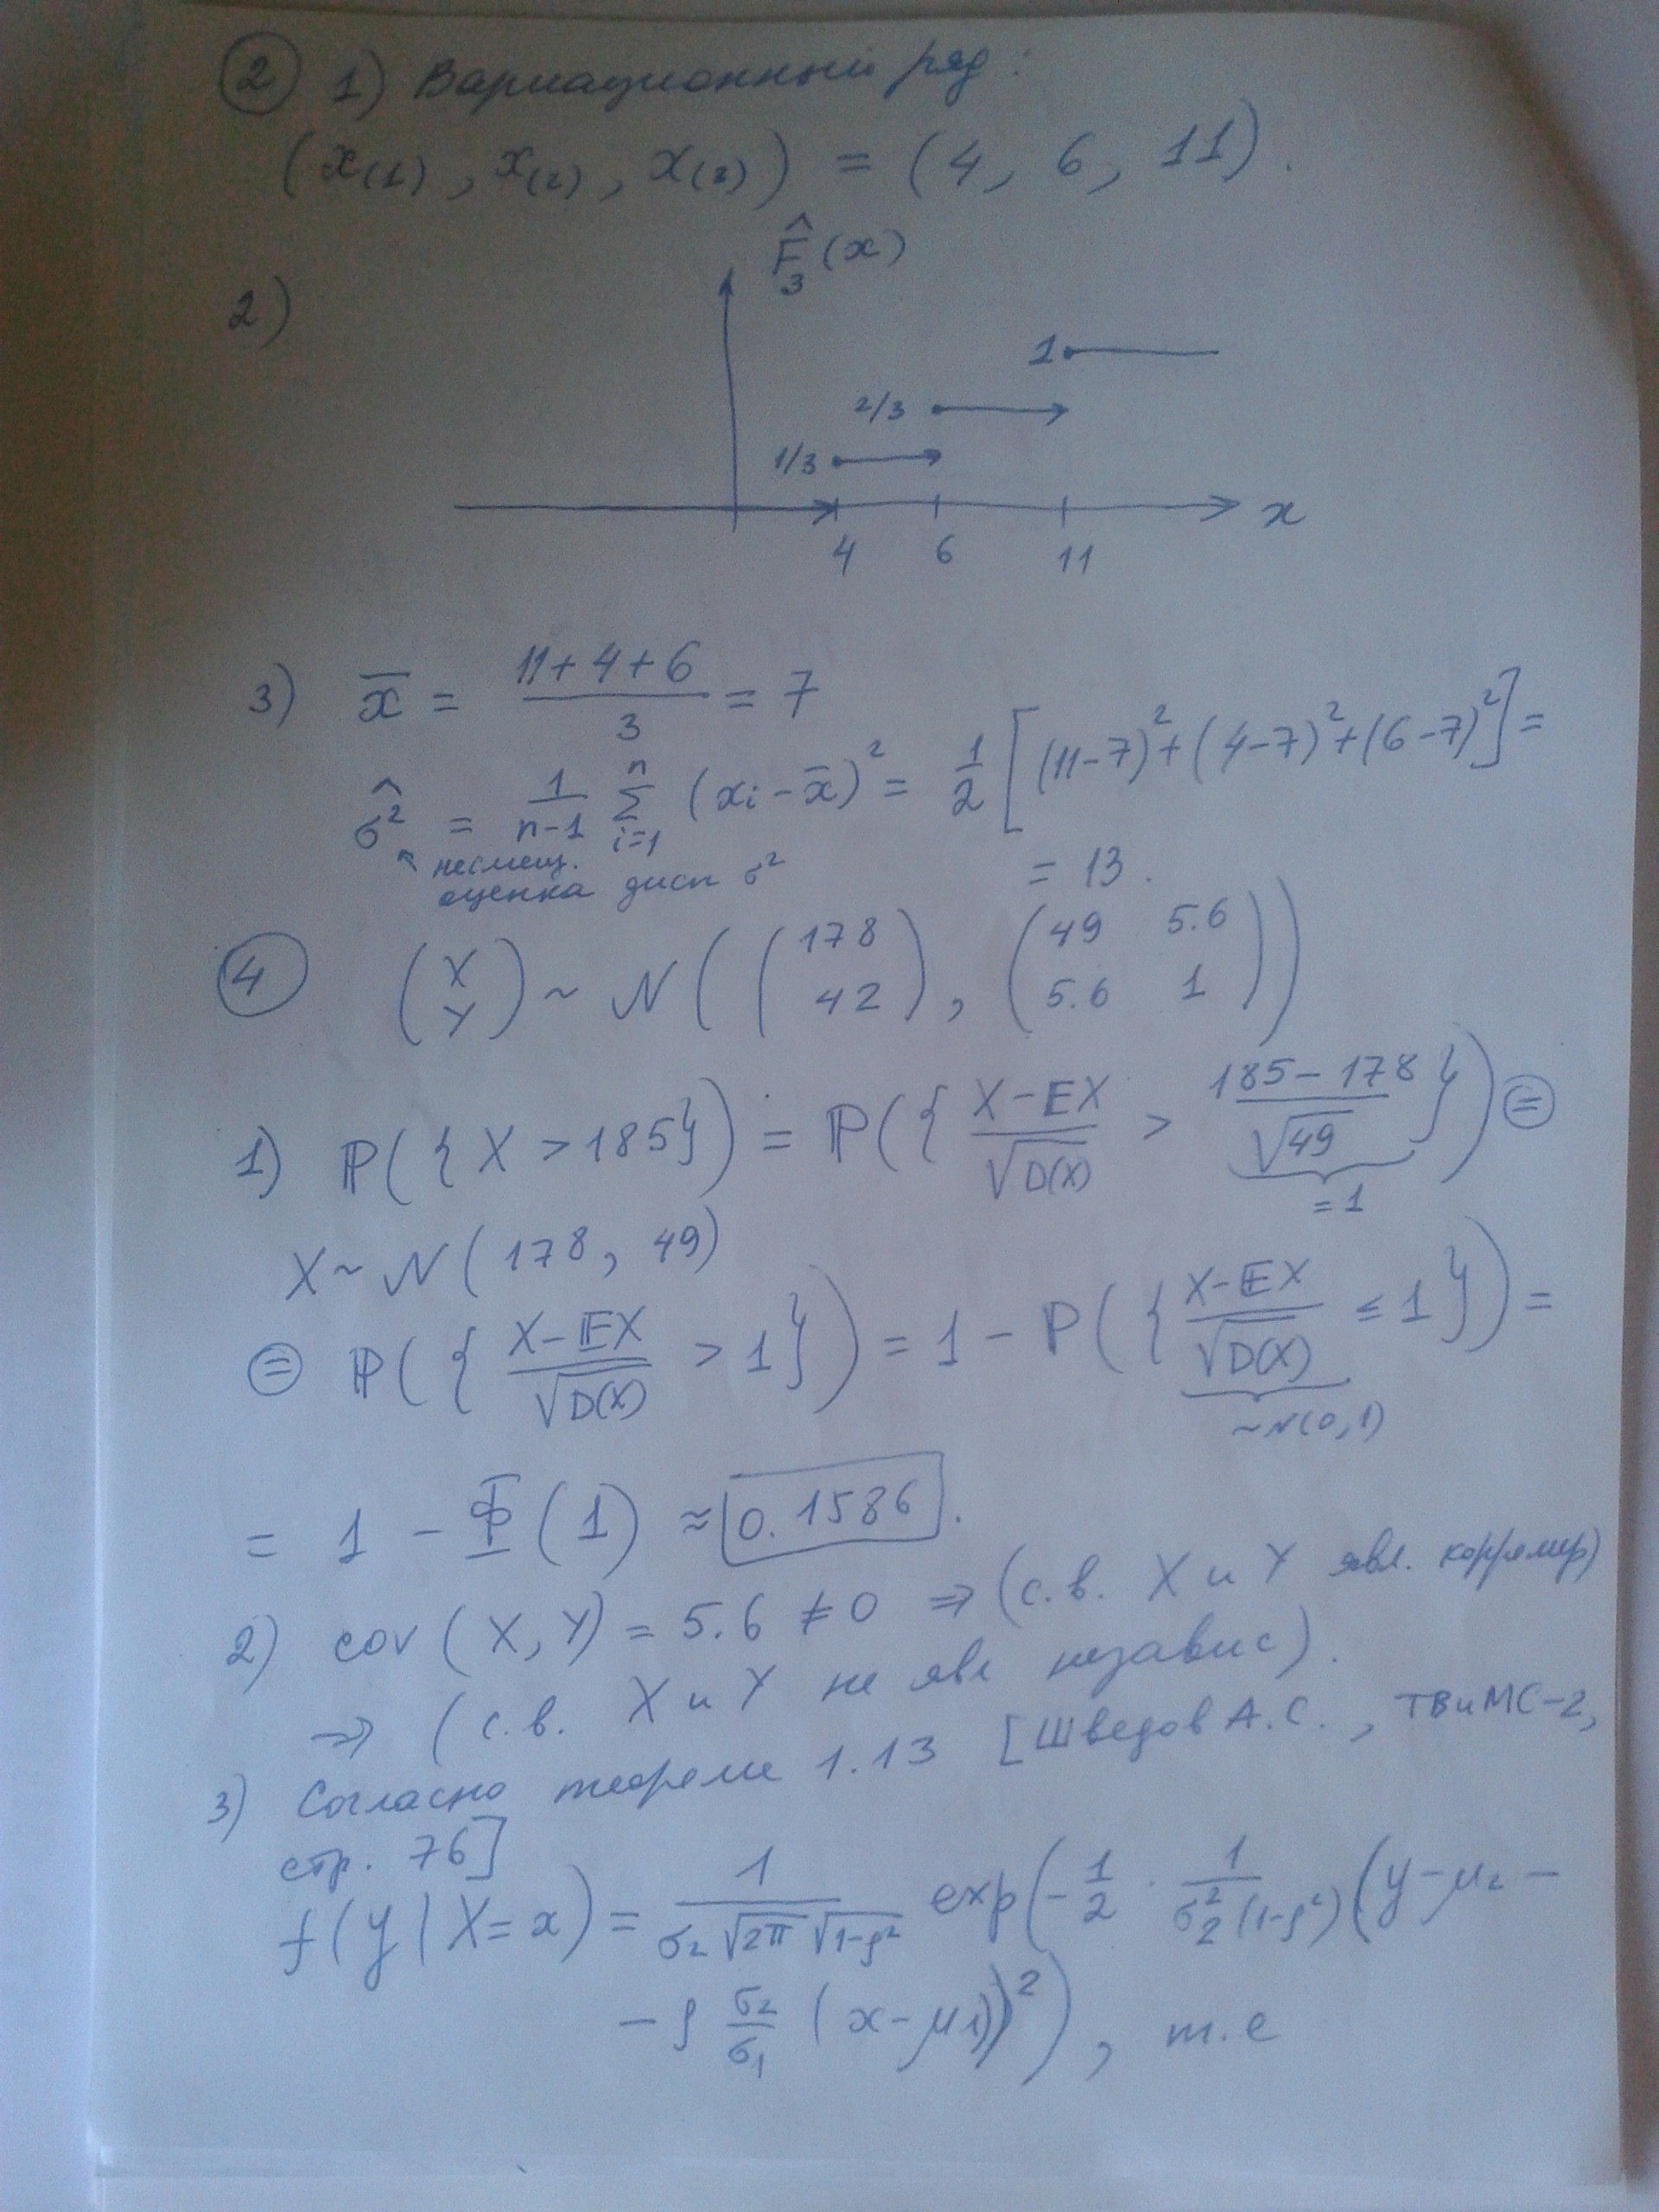 ② 1) Вариационный ряд:
(x₍₁₎, x₍₂₎, x₍₃₎) = (4, 6, 11).
2) F̂₃(x)
1
2/3
1/3
x
4 6 11
3) x̄ = (11+4+6)/3 = 7
σ̂² = 1/(n-1) Σ_{i=1}^{n} (xi - x̄)² = 1/2 [(11-7)² + (4-7)² + (6-7)²] =
несмещ. оценка дисп σ²
= 13.
④ (X Y) ~ N((178 42), (49 5.6 5.6 1))
1) ℙ({X > 185}) = ℙ({(X-𝔼X)/√D(X) > (185-178)/√49}) ⊜
= 1
X ~ N(178, 49)
⊜ ℙ({(X-𝔼X)/√D(X) > 1}) = 1 - ℙ({(X-𝔼X)/√D(X) ≤ 1}) =
~N(0,1)
= 1 - Φ(1) ≈ 0.1586.
2) cov(X, Y) = 5.6 ≠ 0 ⇒ (с.в. X и Y явл. коррелир)
⇒ (с.в. X и Y не явл независ).
3) Согласно теореме 1.13 [Шведов А.С., ТВиМС-2,
стр. 76]
f(y | X=x) = 1/(σ₂√2π √1-ρ²) exp(-1/2 · 1/(σ₂²(1-ρ²)) (y-μ₂ -
- ρ σ₂/σ₁ (x-μ₁))²), т.е